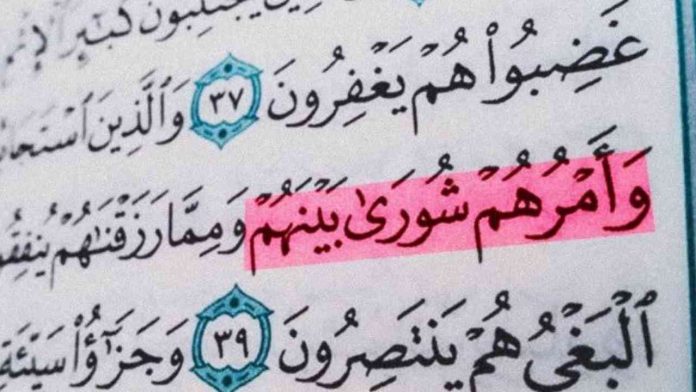 يَجْتَنِبُونَ كَبَٰٓئِرَ
غَضِبُوا۟ هُمْ يَغْفِرُونَ ٣٧ وَٱلَّذِينَ
وَأَمْرُهُمْ شُورَىٰ بَيْنَهُمْ وَمِمَّا رَزَقْنَٰهُمْ
ٱلْبَغْىُ هُمْ يَنتَصِرُونَ ٣٩ وَجَزَٰٓؤُا۟ سَيِّئَةٍ